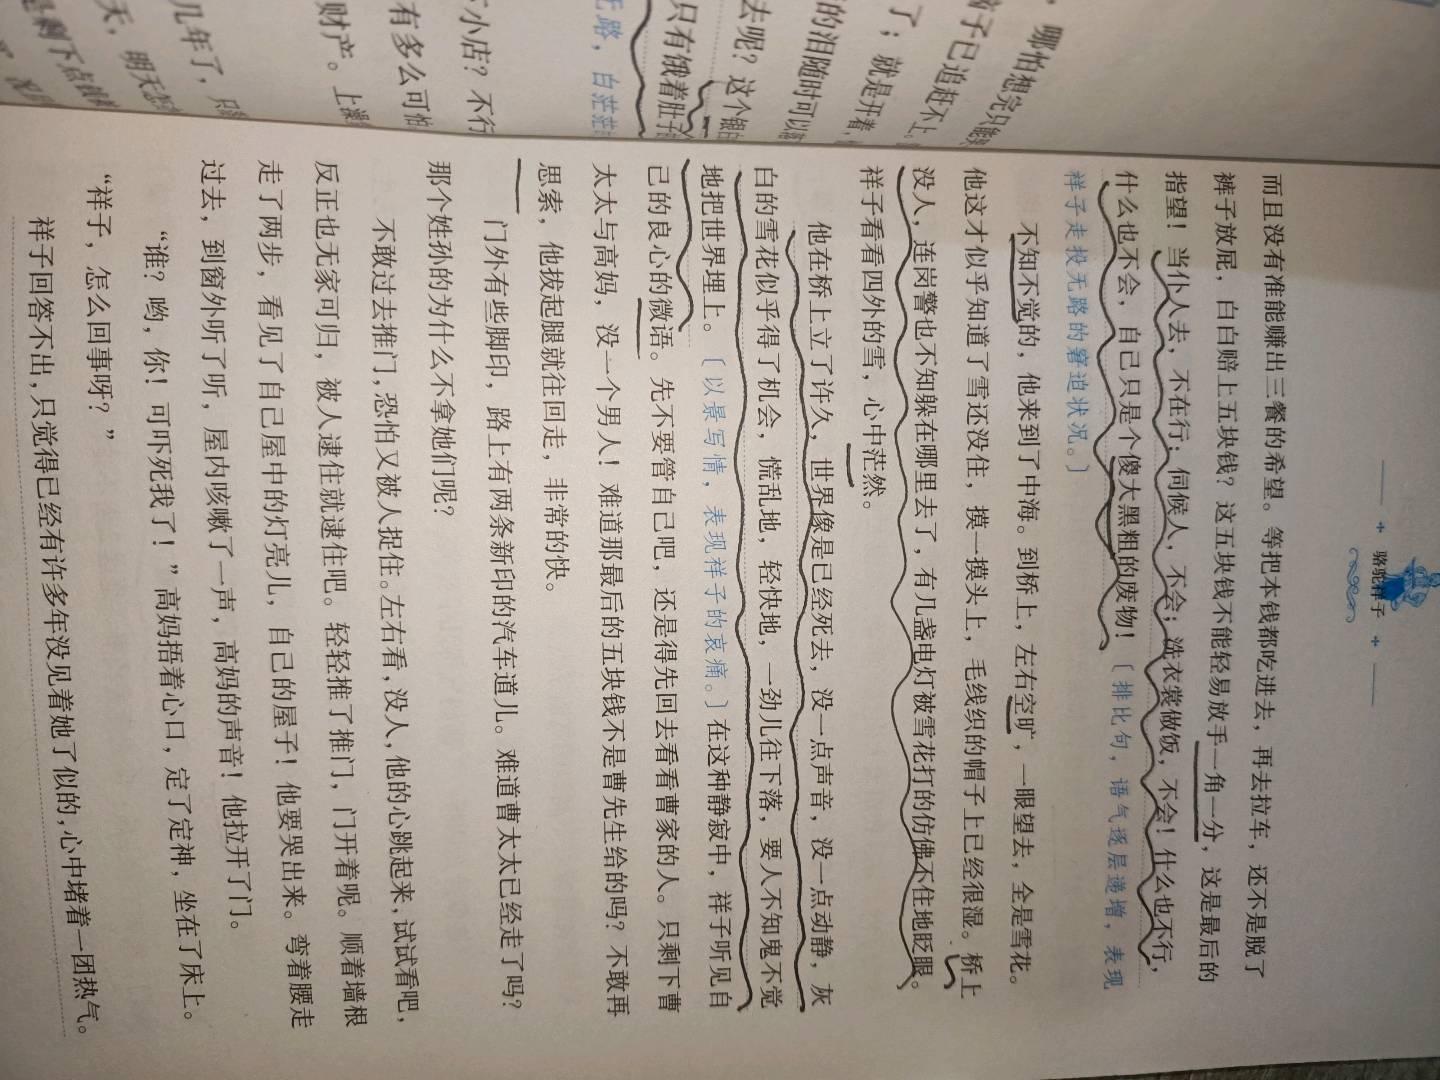 骆驼祥子
而且没有准能赚出三餐的希望。等把本钱都吃进去，再去拉车，还不是脱了
裤子放屁，白白赔上五块钱？这五块钱不能轻易放手一角一分，这是最后的
指望！当仆人去，不在行；伺候人，不会；洗衣裳做饭，不会！什么也不行，
什么也不会，自己只是个傻大黑粗的废物！〔排比句，语气逐层递增，表现
祥子走投无路的窘迫状况。〕
不知不觉的，他来到了中海。到桥上，左右空旷，一眼望去，全是雪花。
他这才似乎知道了雪还没住，摸一摸头上，毛线织的帽子上已经很湿。桥上
没人，连岗警也不知躲在哪里去了，有几盏电灯被雪花打的仿佛不住地眨眼。
祥子看看四外的雪，心中茫然。
他在桥上立了许久，世界像是已经死去，没一点声音，没一点动静，灰
白的雪花似乎得了机会，慌乱地，轻快地，一劲儿往下落，要人不知鬼不觉
地把世界埋上。〔以景写情，表现祥子的哀痛。〕在这种静寂中，祥子听见自
己的良心的微语。先不要管自己吧，还是得先回去看看曹家的人。只剩下曹
太太与高妈，没一个男人！难道那最后的五块钱不是曹先生给的吗？不敢再
思索，他拔起腿就往回走，非常的快。
门外有些脚印，路上有两条新印的汽车道儿。难道曹太太已经走了吗？
那个姓孙的为什么不拿她们呢？
不敢过去推门，恐怕又被人捉住。左右看，没人，他的心跳起来，试试看吧，
反正也无家可归，被人逮住就逮住吧。轻轻推了推门，门开着呢。顺着墙根
走了两步，看见了自己屋中的灯亮儿，自己的屋子！他要哭出来。弯着腰走
过去，到窗外听了听，屋内咳嗽了一声，高妈的声音！他拉开了门。
“谁？哟，你！可吓死我了！”高妈捂着心口，定了定神，坐在了床上。
“祥子，怎么回事呀？”
祥子回答不出，只觉得已经有许多年没见着她了似的，心中堵着一团热气。
，哪怕想兜只
子已追赶不上。
了；就是开着，
的泪随时可以
去呢？这个银白
只有饿着肚子
无路，白茫茫
小店？不行
有多么可怕
财产。上
几年了，只
天，明天怎
是剩下点